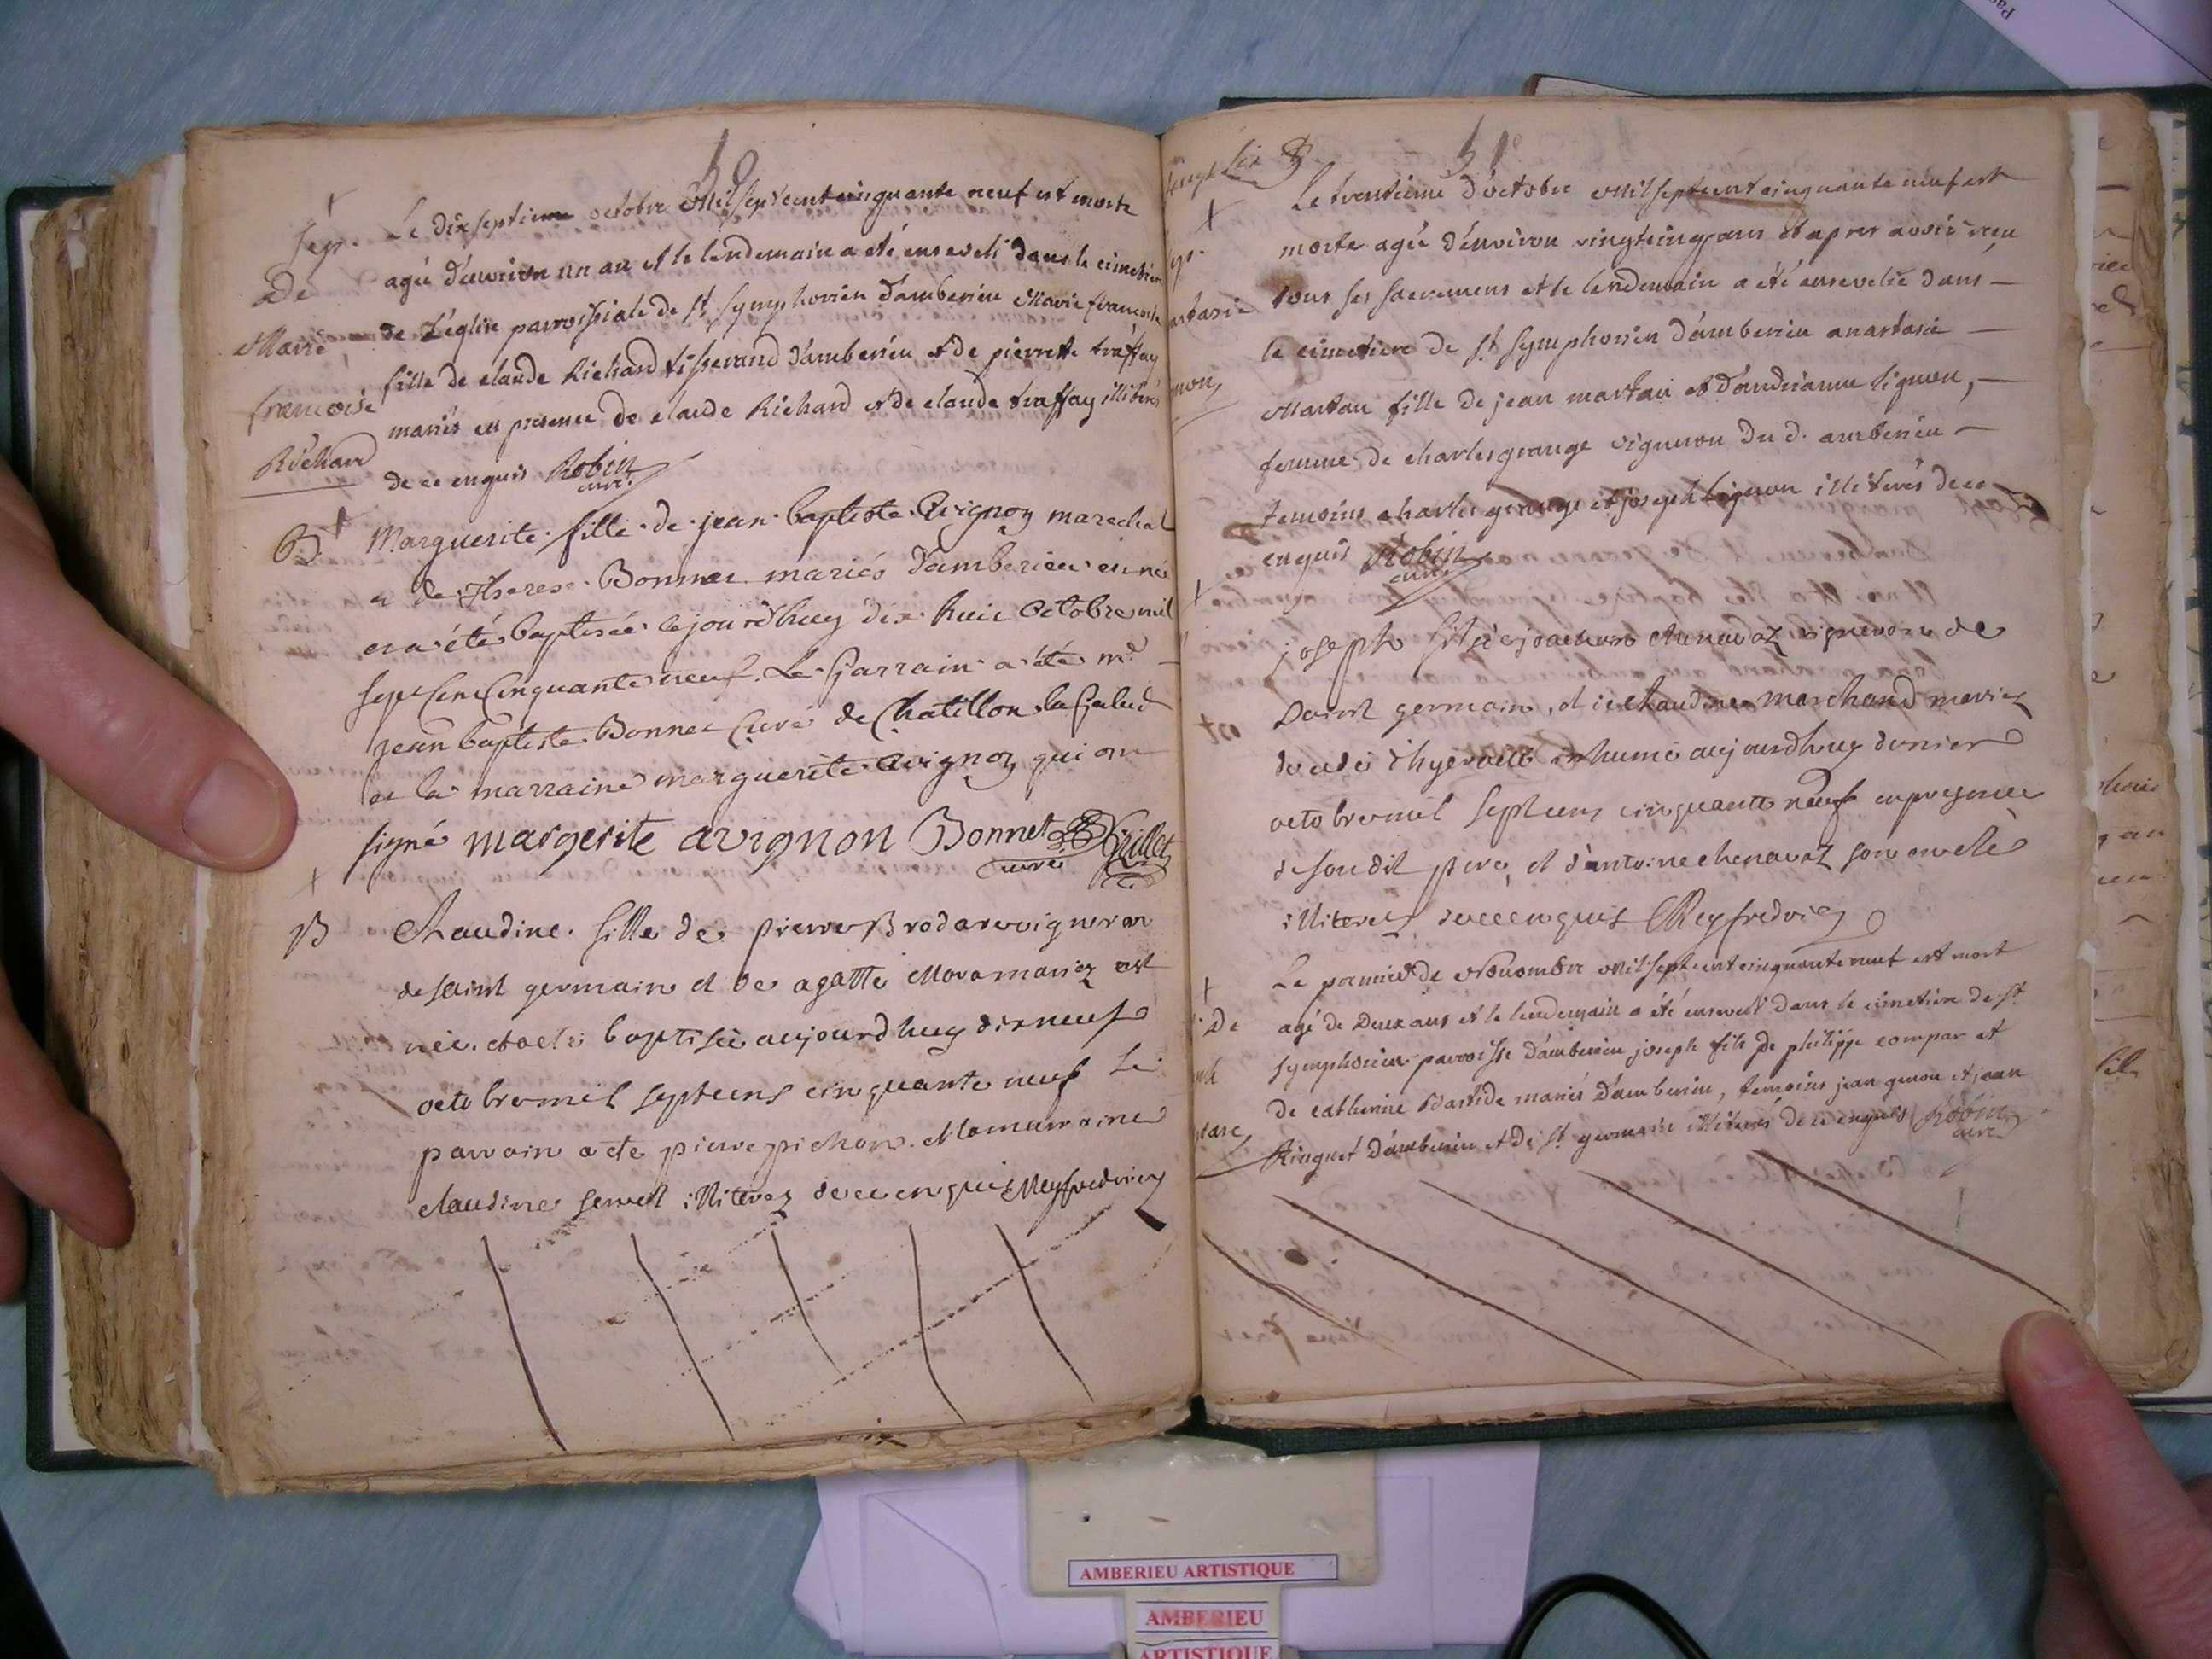 50
Sep.
de
Marie
françoise
Richard
Le dixseptieme octobre Mil sept cent cinquante neuf est morte
agée d'environ un an et le lendemain a été enseveli dans le cimetiere
de L'église parroissiale de st symphorien d'amberieu Marie françoise
fille de claude Richard tisserand d'amberieu et de pierrette traffay
mariés en presence de claude Richard et de claude traffay illiterés
de ce enquis Robin
curé
B. Marguerite fille de jean baptiste Avignon marechal
et de Therese Bonnet mariés d'amberieu est née
et a été baptisée cejourd'huy dix huit Octobre mil
sept cent cinquante neuf. Le Parrain a été mr
jean baptiste Bonnet Curé de Chatillon la Palud
et la marraine marguerite avignon qui ont
signé margerite avignon Bonnet Grillet
curé
B Claudine fille de pierre Brodaro vigneron
de saint germain et de agatte Mora mariez est
née et a ete baptisée aujourdhuy dix neuf
octobre mil sept cens cinquante neuf Le
parrain a ete pierre pichon. La marraine
claudine servet illiterez de ce enquis Meyfredviez
51
Le trentieme d'octobre Mil sept cent cinquante neuf est
morte agée d'environ vingt cinq ans et apres avoir reçu
tous ses sacremens et le lendemain a été ensevelie dans
le cimetiere de st symphorien d'amberieu anastasie
Martau fille de jean martau et d'andrianne lignon,
femme de charles grange vigneron du d. amberieu
temoins charles grange et joseph lignon illiterés de ce
enquis Robin
curé
joseph fils de joachim chenavaz vigneron de
saint germain, et de claudine marchand mariez
decedé d'hyer a été inhumé aujourdhuy dernier
octobre mil sept cens cinquante neuf en presence
de son dit pere, et d'antoine chenavaz son oncle
illiterez de ce enquis Meyfredviez
Le premier de Novembre Mil sept cent cinquante neuf est mort
agé de Deux ans et le lendemain a été enseveli dans le cimetiere de st
symphorien parroisse d'amberieu joseph fils de philippe compar et
de catherine Bastide mariés d'amberieu, temoins jean genou et jean
Ringuet d'amberieu et de st germain illiterés de ce enquis Robin
curé
AMBERIEU ARTISTIQUE
AMBERIEU
ARTISTIQUE